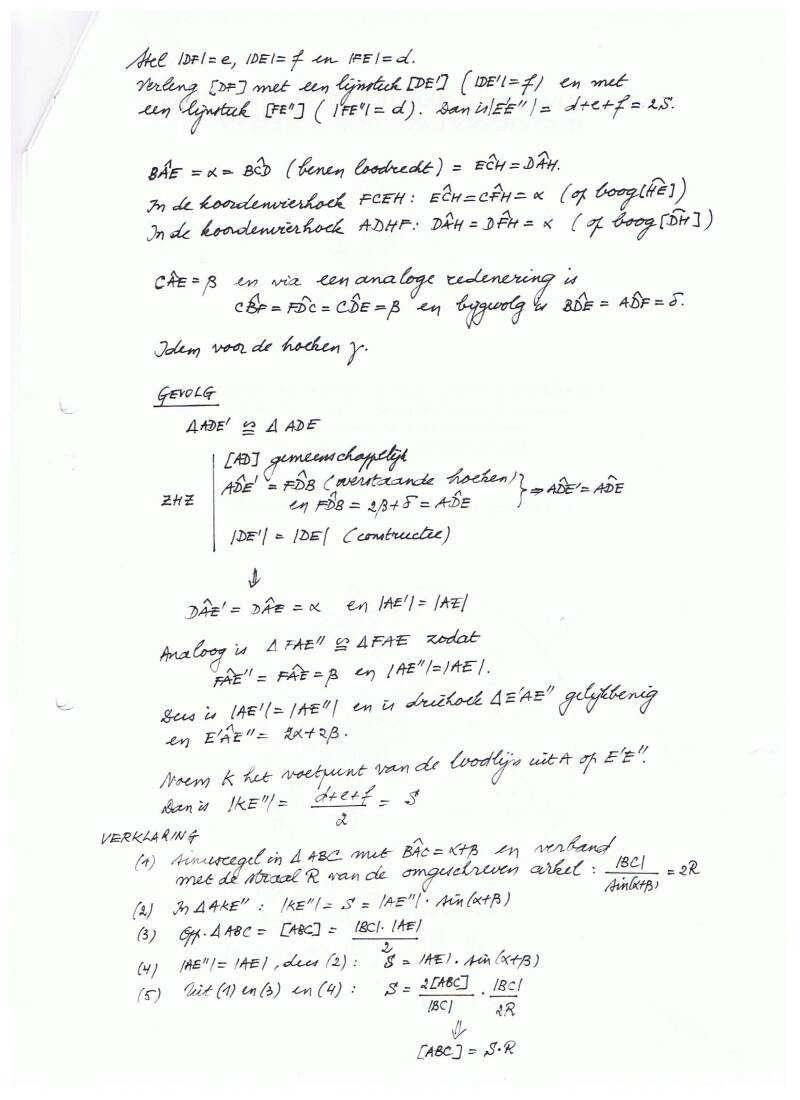 Stel |DF| = e, |DE| = f en |FE| = d.
Verleng [DF] met een lijnstuk [DE'] (|DE'| = f) en met
een lijnstuk [FE"] (|FE"| = d). Dan is |E'E"| = d+e+f = 2S.
BÂE = α = BĈD (benen loodrecht) = EĈH = DÂH.
In de koordenvierhoek FCEH: EĈH = CF̂H = α (op boog [HE])
In de koordenvierhoek ADHF: DÂH = DF̂H = α (op boog [DH])
CÂE = β en via een analoge redenering is
CB̂F = FD̂C = CD̂E = β en bijgevolg is BD̂E = AD̂F = δ.
Idem voor de hoeken γ.
GEVOLG
Δ ADE' ≅ Δ ADE
[AD] gemeenschappelijk
ZHZ AD̂E' = FD̂B (overstaande hoeken)
en FD̂B = 2β+δ = AD̂E } ⇒ AD̂E' = AD̂E
|DE'| = |DE| (constructie)
⇓
DÂE' = DÂE = α en |AE'| = |AE|
Analoog is Δ FAE" ≅ Δ FAE zodat
FÂE" = FÂE = β en |AE"| = |AE|.
Dus is |AE'| = |AE"| en is driehoek ΔE'AE" gelijkbenig
en E'ÂE" = 2α+2β.
Noem K het voetpunt van de loodlijn uit A op E'E".
Dan is |KE"| = (d+e+f)/2 = S
VERKLARING
(1) Sinusregel in Δ ABC met BÂC = α+β en verband
met de straal R van de omgeschreven cirkel : |BC|/sin(α+β) = 2R
(2) In ΔAKE" : |KE"| = S = |AE"| · sin(α+β)
(3) Opp. Δ ABC = [ABC] = |BC|·|AE|/2
(4) |AE"| = |AE|, dus (2) : S = |AE| · sin(α+β)
(5) Uit (1) en (3) en (4) : S = 2[ABC]/|BC| · |BC|/2R
⇓
[ABC] = S·R